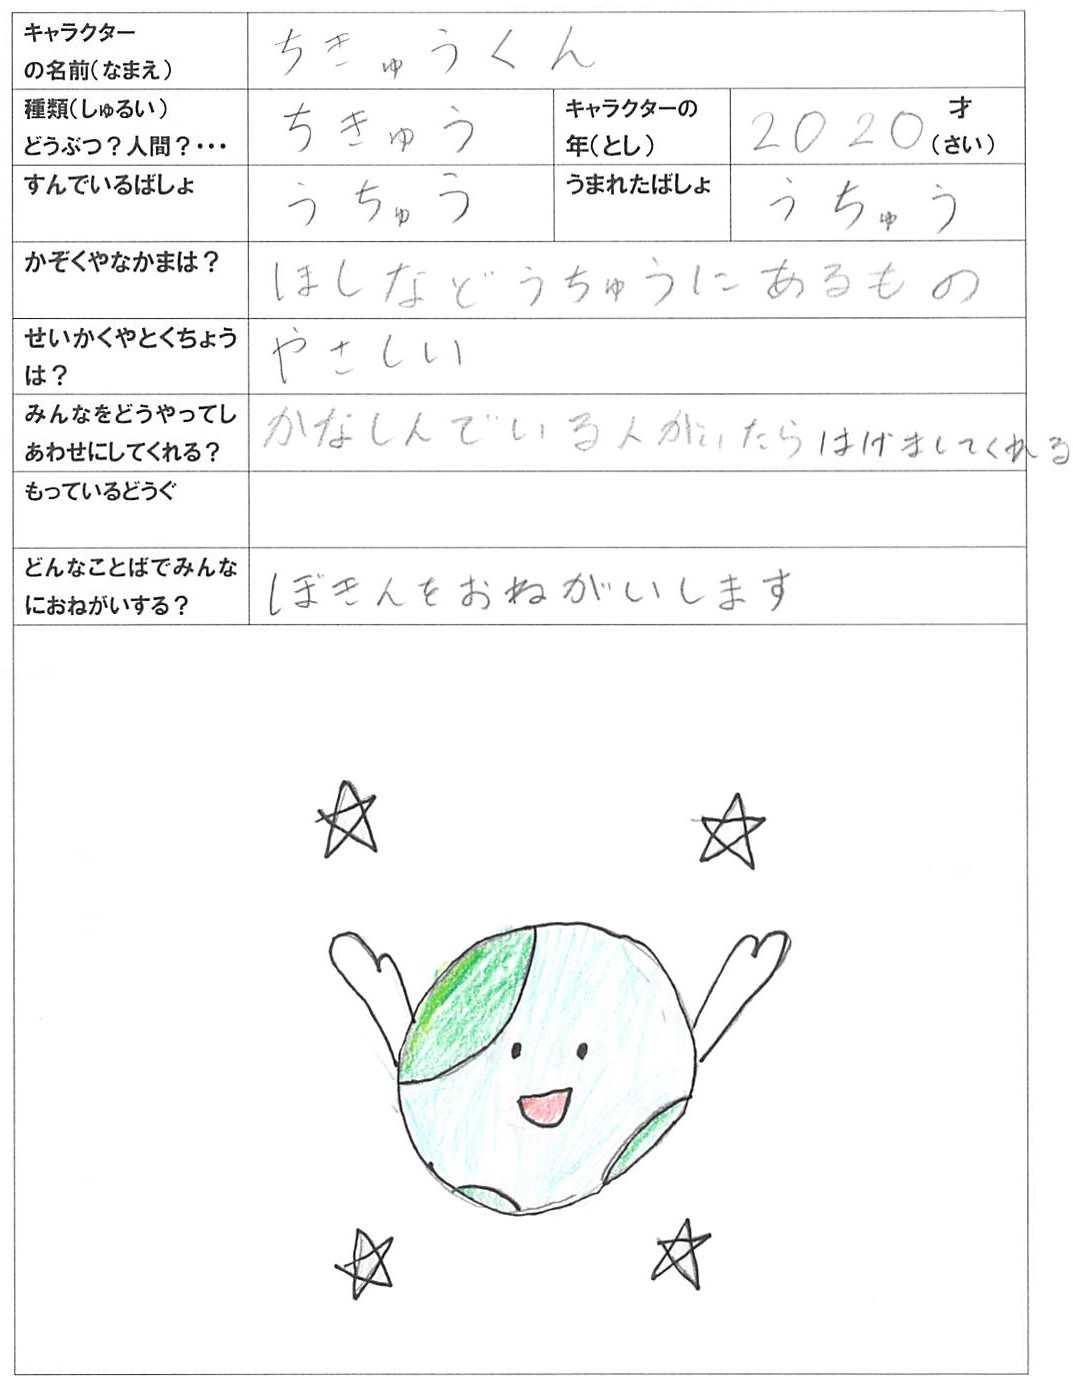 キャラクター
の名前(なまえ)
ちきゅうくん
種類(しゅるい)
どうぶつ?人間?・・・
ちきゅう
キャラクターの
年(とし)
2020才
(さい)
すんでいるばしょ
うちゅう
うまれたばしょ
うちゅう
かぞくやなかまは?
ほしなどうちゅうにあるもの
せいかくやとくちょう
は?
やさしい
みんなをどうやってし
あわせにしてくれる?
かなしんでいる人がいたらはげましてくれる
もっているどうぐ
どんなことばでみんな
におねがいする?
ぼきんをおねがいします